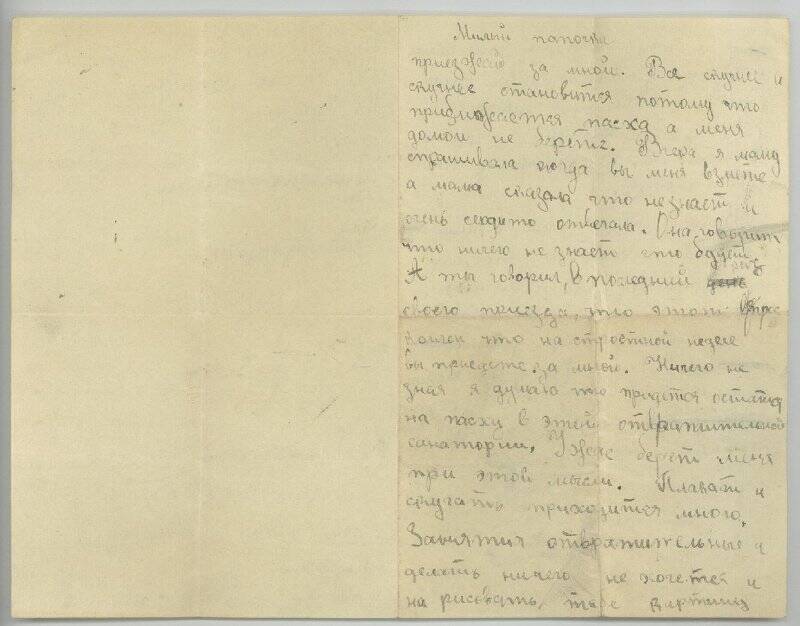 Милый папочка
приезжай за мной. Все скучнее и
скучнее становится потому что
приближается пасха а меня
домой не берете. Вчера я маму
спрашивала когда вы меня взмете
а мама сказала что незнает и
очень сердито отвечала. Она говорит
что ничего не знает что будет.
А ты говорил, в последний раз
своего приезда, что этот
что на страстной неделе
вы приедете за мной. Ничего не
зная я думаю что придется остатся
на пасху в этой отвратительной
санатории. Ужас берет меня
при этой мысли. Плакать и
скучать приходится много.
Занятия отвратительные и
делать ничего не хочется и
на рисовать, картинку